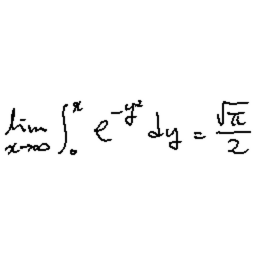 lim_{x→∞} ∫_0^x e^{-y²} dy = √π/2